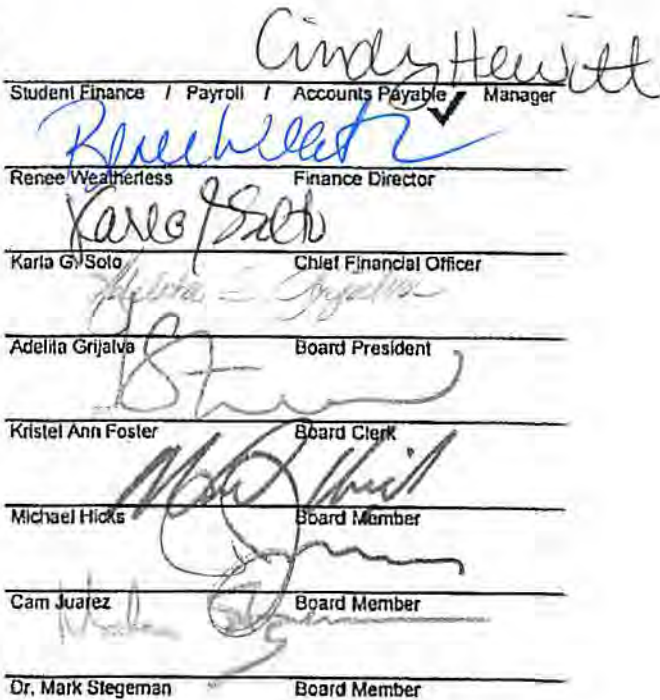 Cindy Hewitt
Student Finance / Payroll / Accounts Payable / Manager
✓
Renee Weatherless Finance Director
Karla G Soto
Karla G. Soto Chief Financial Officer
Adelita Grijalva Board President
Kristel Ann Foster Board Clerk
Michael Hicks Board Member
Cam Juarez Board Member
Dr. Mark Stegeman Board Member